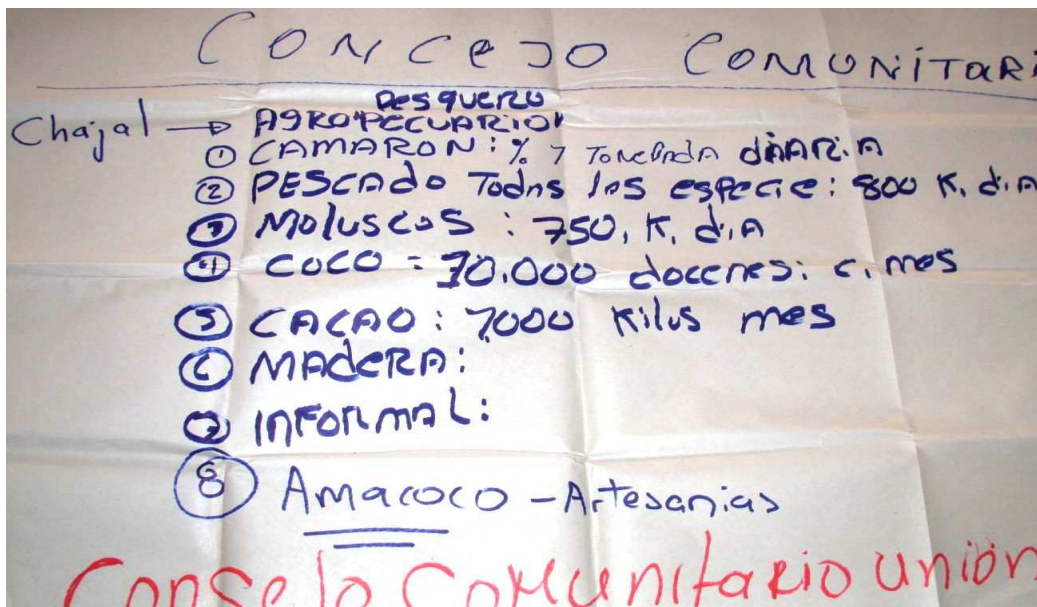 CONCEJO COMUNITARI
PESQUERO
Chajal → AGROPECUARIO
① CAMARON: % 7 TONELADA diARIA
② PESCAdo Todas las especie: 800 K. diA
③ MOluscos: 750, K, diA
④ COCO = 70.000 docenas: c. mes
⑤ CACAO: 7,000 Kilos mes
⑥ MADERA:
⑦ INFORMAL:
⑧ Amacoco - Artesanias
Consejo Comunitario unión